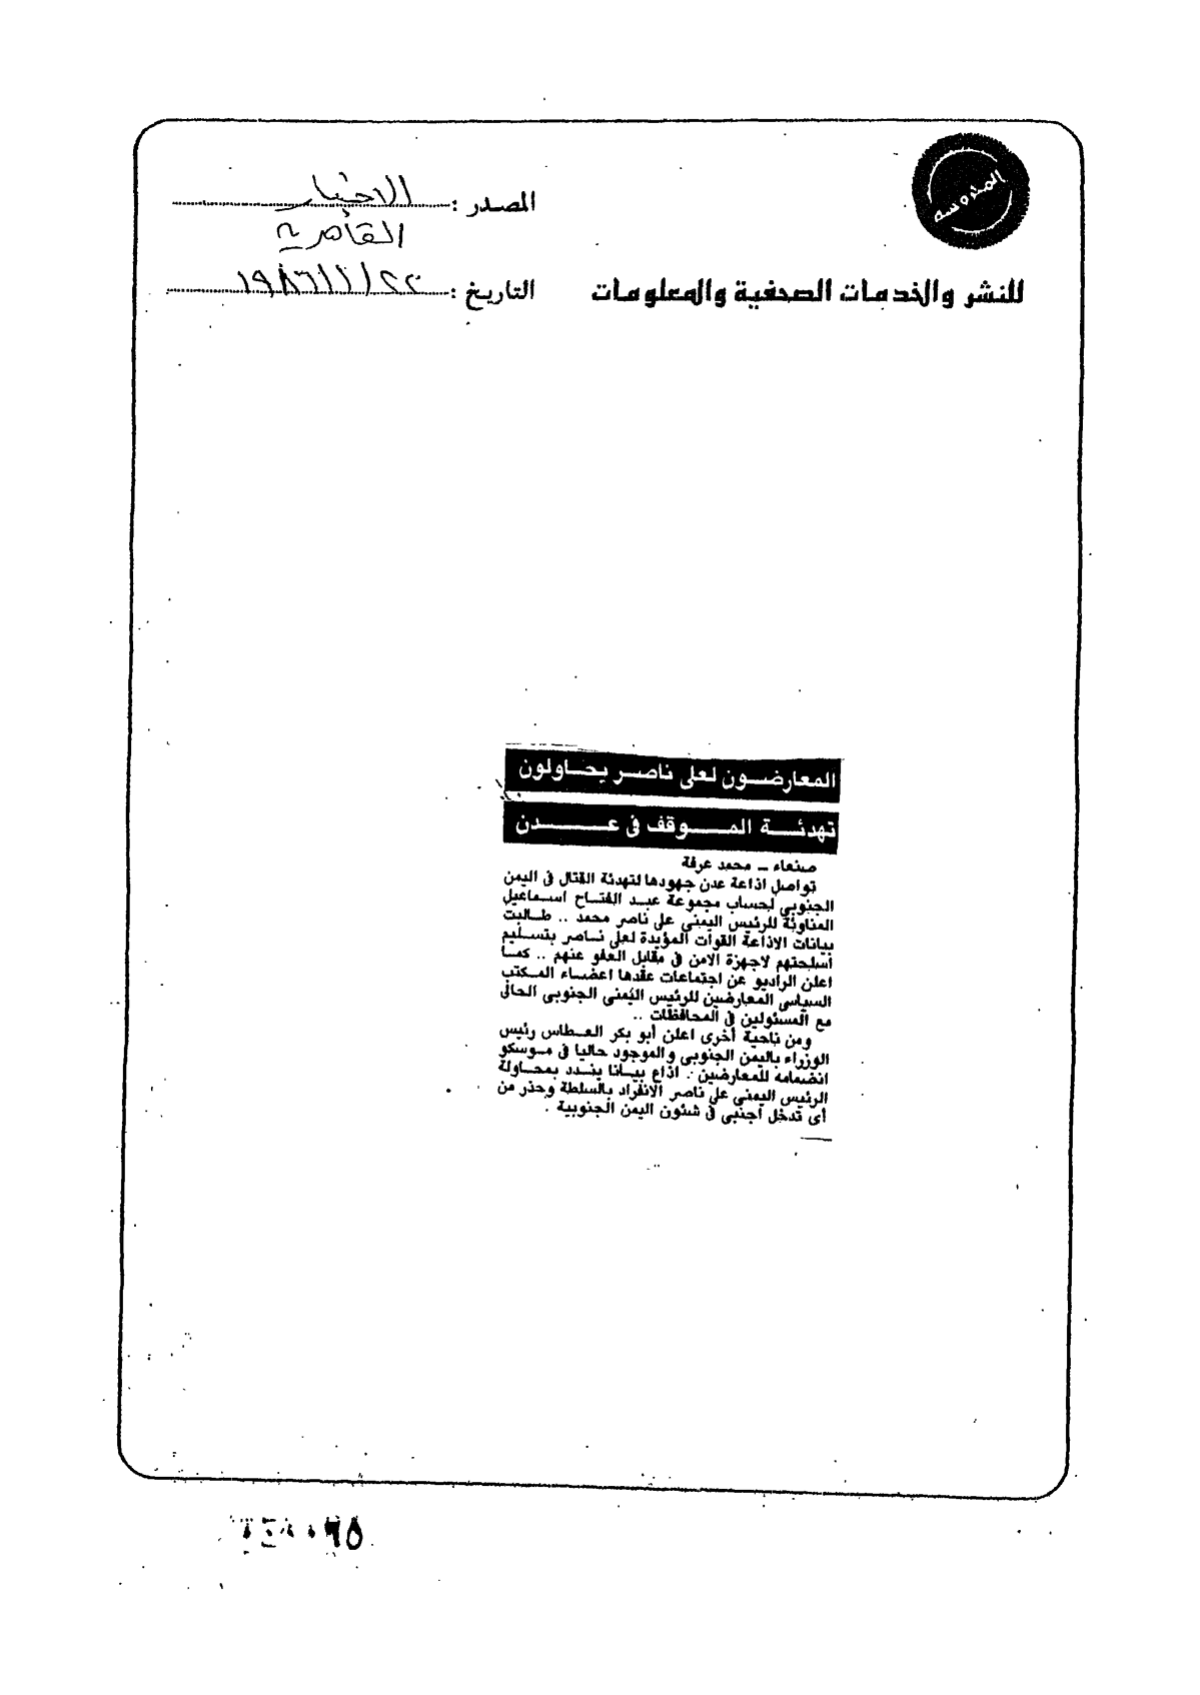 المحروسة
المصدر : الاخبار
القاهرية
للنشر والخدمات الصحفية والمعلومات
التاريخ : ٢٢/١/١٩٨٦
المعارضـون لعلى ناصر يحـاولون
تهدئـة المـوقف فى عـدن
صنعاء ــ محمد عرفة
تواصل اذاعة عدن جهودها لتهدئة القتال فى اليمن
الجنوبى لحساب مجموعة عبد الفتاح اسماعيل
المناوئة للرئيس اليمنى على ناصر محمد .. طالبت
بيانات الاذاعة القوات المؤيدة لعلى ناصر بتسليم
اسلحتهم لاجهزة الامن فى مقابل العفو عنهم .. كما
اعلن الراديو عن اجتماعات عقدها اعضاء المكتب
السياسى المعارضين للرئيس اليمنى الجنوبى الحالى
مع المسئولين فى المحافظات ..
ومن ناحية أخرى اعلن أبو بكر العطاس رئيس
الوزراء باليمن الجنوبى والموجود حاليا فى موسكو
انضمامه للمعارضين .. اذاع بيانا يندد بمحاولة
الرئيس اليمنى على ناصر الانفراد بالسلطة وحذر من
أى تدخل أجنبى فى شئون اليمن الجنوبية .